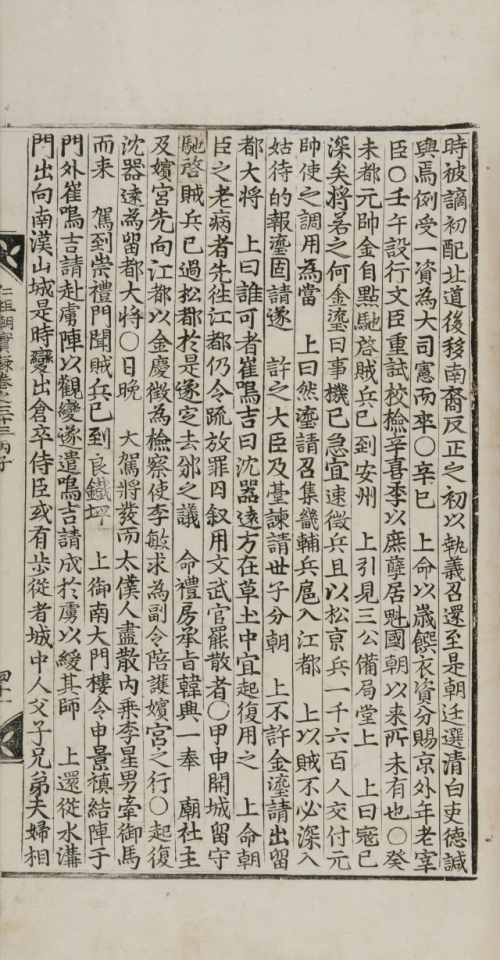 時被謫初配北道後移南裔反正之初以執義召還至是朝廷選清白吏德諴
與焉例受一資為大司憲而卒〇辛巳　上命以歲饌衣資分賜京外年老宰
臣〇壬午設行文臣重試校檢辛喜季以庶孽居魁國朝以來所未有也〇癸
未都元帥金自點馳啓賊兵已到安州　上引見三公備局堂上　上曰寇已
深矣將若之何金瑬曰事機已急宜速徵兵且以松京兵一千六百人交付元
帥使之調用為當　上曰然瑬請召集畿輔兵扈入江都　上以賊不必深入
姑待的報瑬固請遂　許之大臣及臺諫請世子分朝　上不許金瑬請出留
都大將　上曰誰可者崔鳴吉曰沈器遠方在草土中宜起復用之　上命朝
臣之老病者先徃江都仍令疏放罪囚叙用文武官罷散者〇甲申開城留守
馳啓賊兵已過松都於是遂定去邠之議　命禮房承旨韓興一奉　廟社主
及嬪宮先向江都以金慶徵為檢察使李敏求為副令陪護嬪宮之行〇起復
沈器遠為留都大將〇日晚　大駕將發而太僕人盡散內乘李星男牽御馬
而来　駕到崇禮門聞賊兵已到良鐵坪　上御南大門樓令申景禛結陣于
門外崔鳴吉請赴虜陣以觀變遂遣鳴吉請成於虜以緩其師　上還從水溝
門出向南漢山城是時變出倉卒侍臣或有步從者城中人父子兄弟夫婦相
仁祖朝實錄卷之三十三丙子
四十一